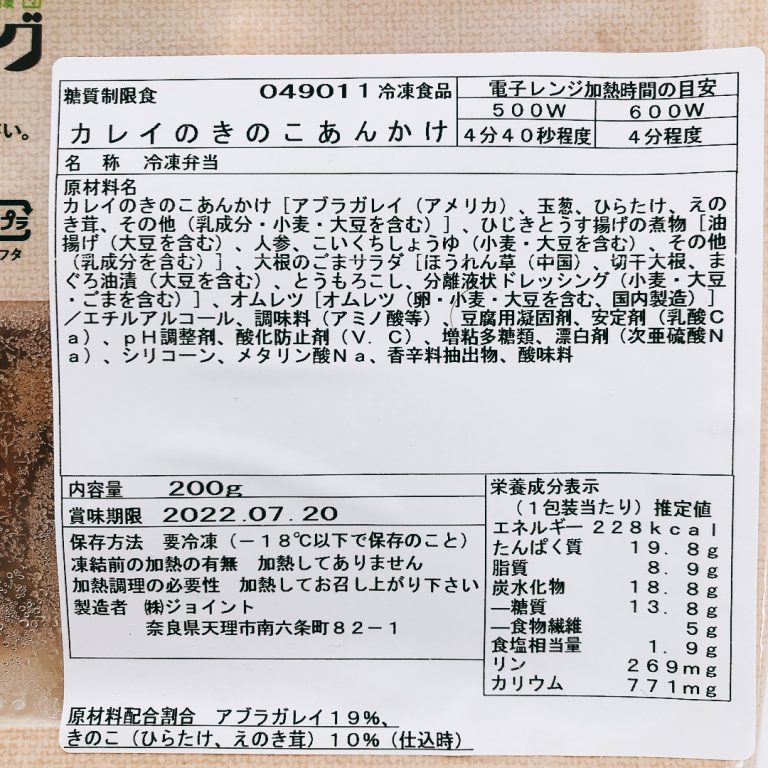 グ
さい。
プラ
フタ
糖質制限食 049011冷凍食品
カレイのきのこあんかけ
電子レンジ加熱時間の目安
500W 600W
4分40秒程度 4分程度
名 称 冷凍弁当
原材料名
カレイのきのこあんかけ［アブラガレイ（アメリカ）、玉葱、ひらたけ、えの
き茸、その他（乳成分・小麦・大豆を含む）］、ひじきとうす揚げの煮物［油
揚げ（大豆を含む）、人参、こいくちしょうゆ（小麦・大豆を含む）、その他
（乳成分を含む）］、大根のごまサラダ［ほうれん草（中国）、切干大根、ま
ぐろ油漬（大豆を含む）、とうもろこし、分離液状ドレッシング（小麦・大豆
・ごまを含む）］、オムレツ［オムレツ（卵・小麦・大豆を含む、国内製造）］
／エチルアルコール、調味料（アミノ酸等）、豆腐用凝固剤、安定剤（乳酸C
a）、pH調整剤、酸化防止剤（V．C）、増粘多糖類、漂白剤（次亜硫酸N
a）、シリコーン、メタリン酸Na、香辛料抽出物、酸味料
内容量 200g
賞味期限 2022.07.20
保存方法 要冷凍（－18℃以下で保存のこと）
凍結前の加熱の有無 加熱してありません
加熱調理の必要性 加熱してお召し上がり下さい
製造者 ㈱ジョイント
奈良県天理市南六条町82－1
栄養成分表示
（1包装当たり）推定値
エネルギー 228kcal
たんぱく質 19.8g
脂質 8.9g
炭水化物 18.8g
―糖質 13.8g
―食物繊維 5g
食塩相当量 1.9g
リン 269mg
カリウム 771mg
原材料配合割合 アブラガレイ19%、
きのこ（ひらたけ、えのき茸）10%（仕込時）